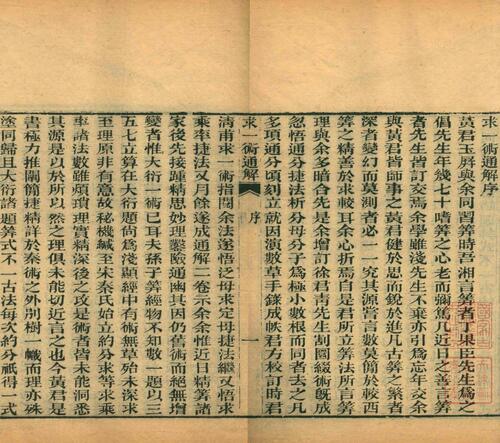 求一術通解序
莫君玉屏與余同習筭時吾湘言筭者丁果臣先生爲之
倡先生年幾七十嗜筭之心老而彌篤凡近日之善言筭
者先生皆訂交焉余學雖淺先生不棄亦引爲忘年交余
與黃君皆師事之黃君健於思而銳於進凡古筭之繁者
深者變幻而莫測者必一一究其源嘗言數莫簡於較西
筭之精善於求較耳余心折焉自是君所立筭法所言筭
理與余多暗合先是余增訂徐君青先生割圜綴術成時
忽悟通分捷法析分母分子爲極小數根而同去之凡
多項通分頃刻立就因演數草手錄成帙君方校訂時君
求一術通解 序 一
淸甫求一術指閱余法遂悟泛母求定母捷法繼又悟求
乘率捷法又月餘遂成通解二卷示余余惟近日精筭諸
家後先接踵精思妙理鑿險通幽其因仍舊術而絕無增
變者惟大衍一術已耳夫孫子筭經物不知數一題以三
五七立算在大衍題尙爲淺顯經中有術無草殆未深求
至理原非有意故秘機緘至宋秦氏始立約分求等求乘
率諸法數雖煩瑣理實精深後之攻是術者皆未能洞悉
其源是以於所以然之理俱未能切近言之也今黃君是
書極力推闡簡捷精詳於秦術之外別樹一幟而理亦殊
塗同歸且大衍諸題筭式不一古法每次約分祇得一式